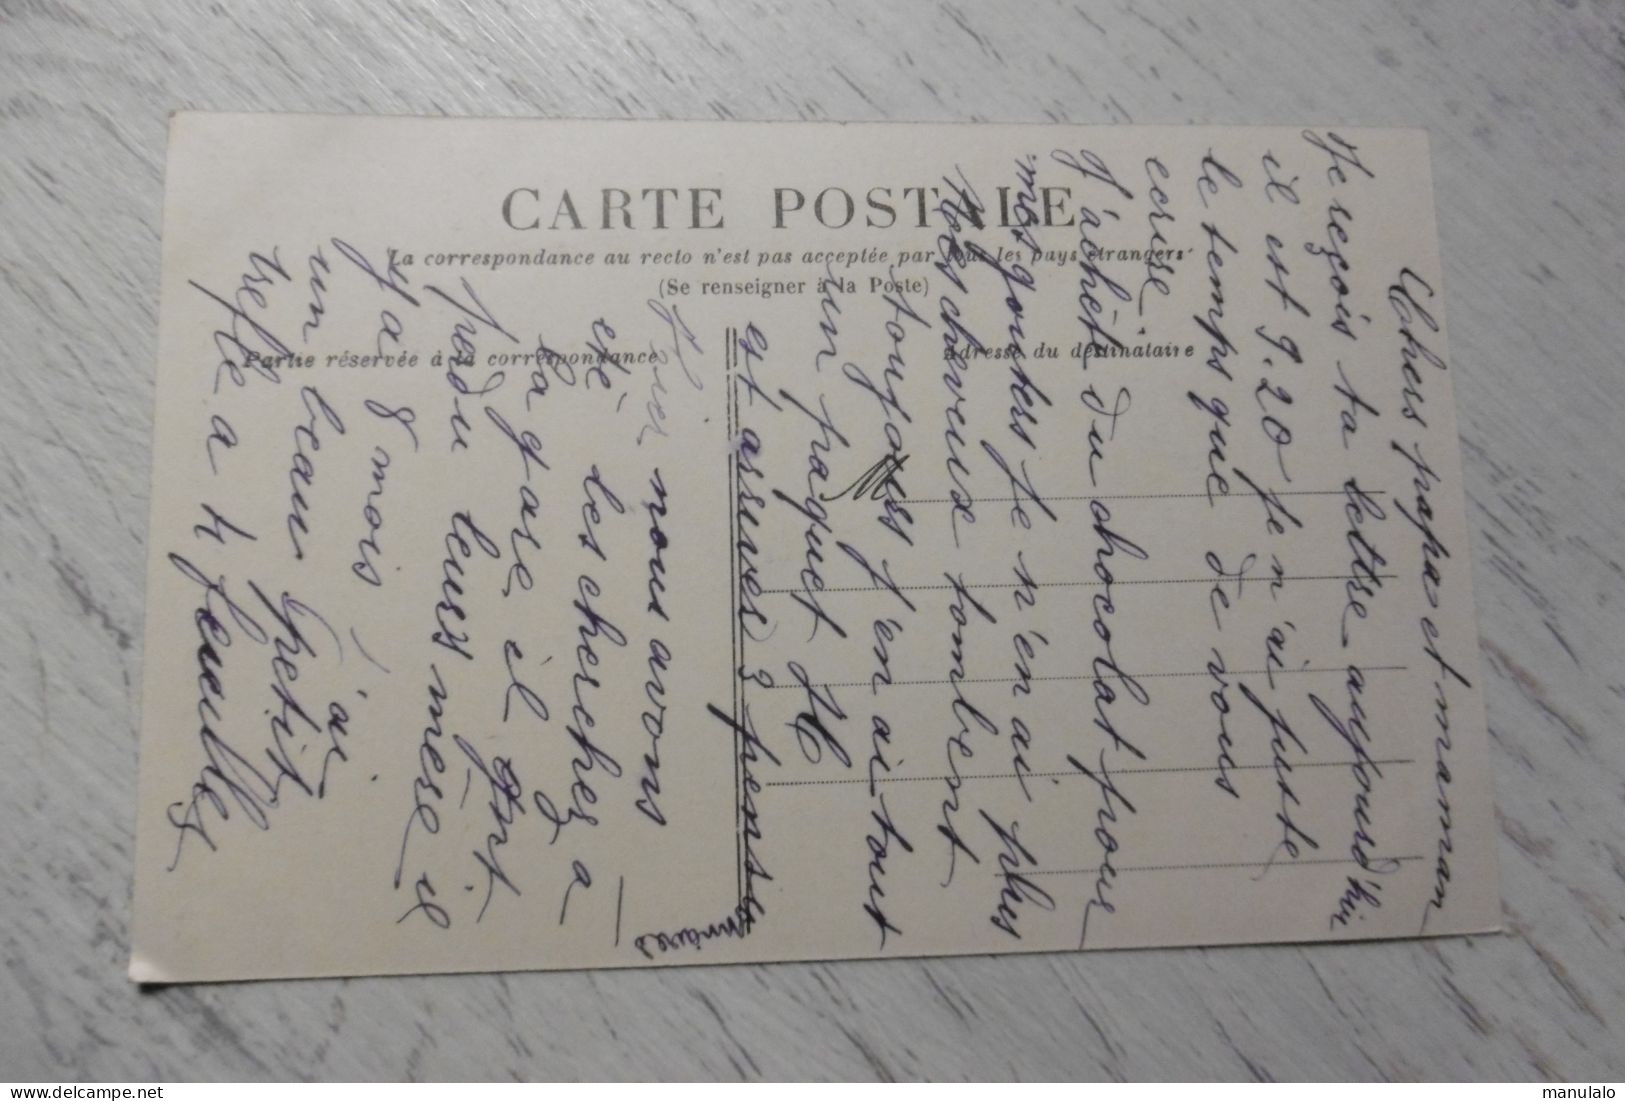 CARTE POSTALE
La correspondance au recto n'est pas acceptée par tous les pays étrangers
(Se renseigner à la Poste)
Partie réservée à la correspondance
Adresse du destinataire
Chers papa et maman
Je reçois ta lettre aujourd'hui
il est 9.20 je n'ai juste
le temps que de vous
ecrire.
J'achèt du chocolat pour
mes gouters je n'en ai plus
Mes cheveux tombent
toujours j'en ai tout
un paquet Il
est arrives 3 pensionnaires
hier nous avons
eté les cherchez a
la gare il ont
perdu leurs mère il
y a 8 mois j'ai
un beau petit
trefle a 4 feuilles
manulalo